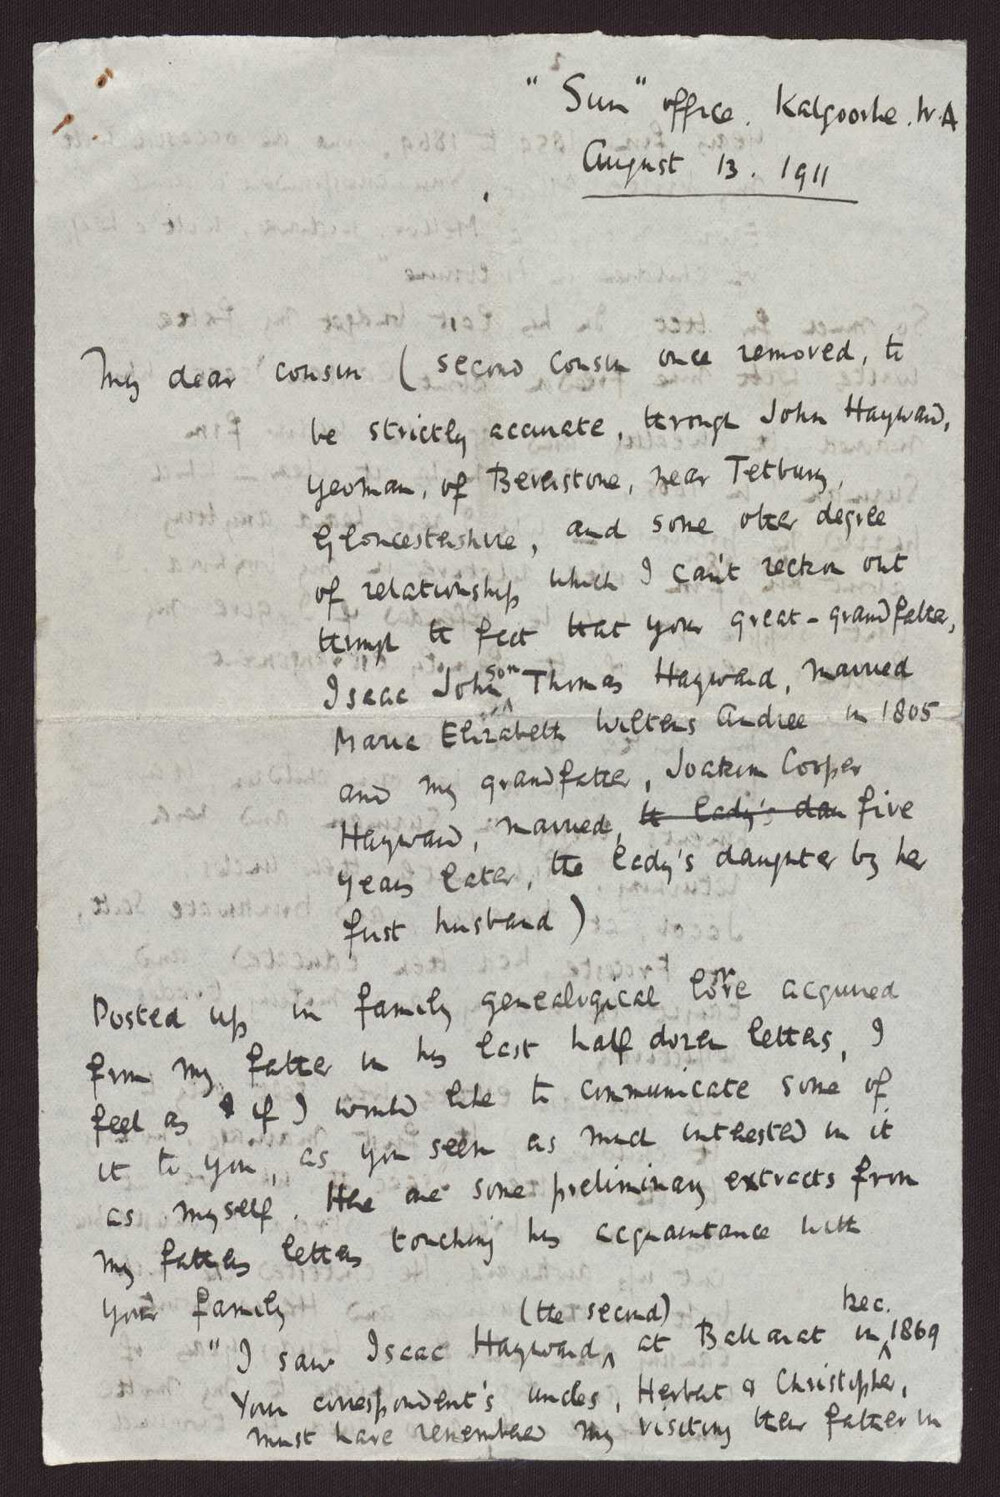 "Sun" office. Kalgoorlie. W.A
August 13. 1911
My dear cousin (second cousin once removed, to
be strictly accurate, through John Hayward,
yeoman, of Beverstone, near Tetbury,
Gloucestershire, and some other degree
of relationship which I can't reckon out
through the fact that your great-grandfather,
Isaac Johnson Thomas Hayward, married
Maria Elizabeth Wilters Andree in 1805
and my grandfather, Joakim Cooper
Hayward, married, the lady's dau five
years later, the lady's daughter by her
first husband)
Posted up in family genealogical lore acquired
from my father in his last half dozen letters, I
feel as if I would like to communicate some of
it to you, as you seem as much interested in it
as myself. Here are some preliminary extracts from
my father's letters touching his acquaintance with
your family
"I saw Isaac Hayward (the second) at Ballarat in Dec. 1869
Your correspondent's uncles, Herbert & Christopher,
must have remembered my visiting their father in